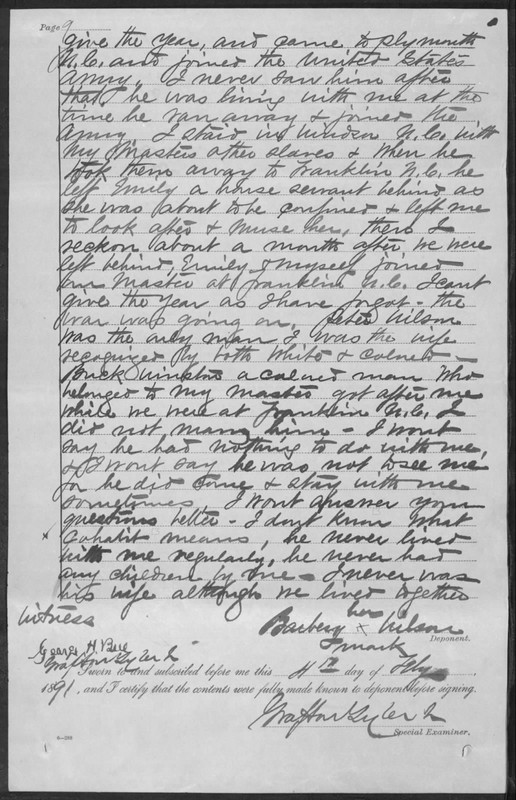 Page 9
give the year, and came to plymouth
N.C. and joined the United States
Army, I never saw him after
that, he was living with me at the
time he ran away & joined the
Army I staid in Windsor N.C. with
my Masters other slaves & when he
took them away to Franklin N.C. he
left Emily a house servant behind as
she was about to be confined & left me
to look after & nurse her, then I
reckon about a month after we were
left behind, Emily & myself joined
our Master at Franklin N.C. I cant
give the year as I have forgot - the
war was going on. Wilson
was the only man I was the wife
recognized by both White & colored -
Buck Winston a colored man who
belonged to my Master got after me
while we were at Franklin N.C. I
did not marry him - I wont
say he had nothing to do with me,
& I wont say he was not to see me,
for he did come & stay with me
sometimes, I wont answer your
questions better - I dont know what
Cohabit means, he never lived
with me regularly, he never had
any children by me - I never was
his wife although we lived together
Witness
her
Barbery x Wilson
mark
Deponent.
George H.
Grafton Tyler Jr
Sworn to and subscribed before me this 4th day of Feby
1891, and I certify that the contents were fully made known to deponent before signing.
Grafton Tyler Jr
Special Examiner.